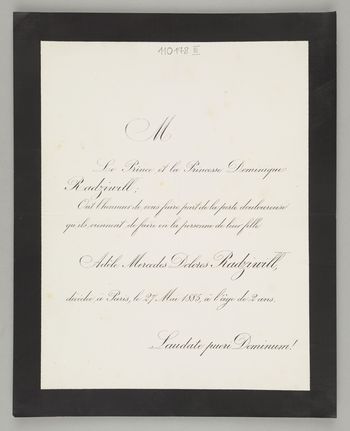 110178 III
M
Le Prince et la Princesse Dominique
Radziwill,
Ont l'honneur de vous faire part de la perte douloureuse
qu'ils viennent de faire en la personne de leur fille
Adèle Mercedes Dolores Radziwill,
décédée à Paris, le 27 Mai 1885, à l'âge de 2 ans.
Laudate pueri Dominum!